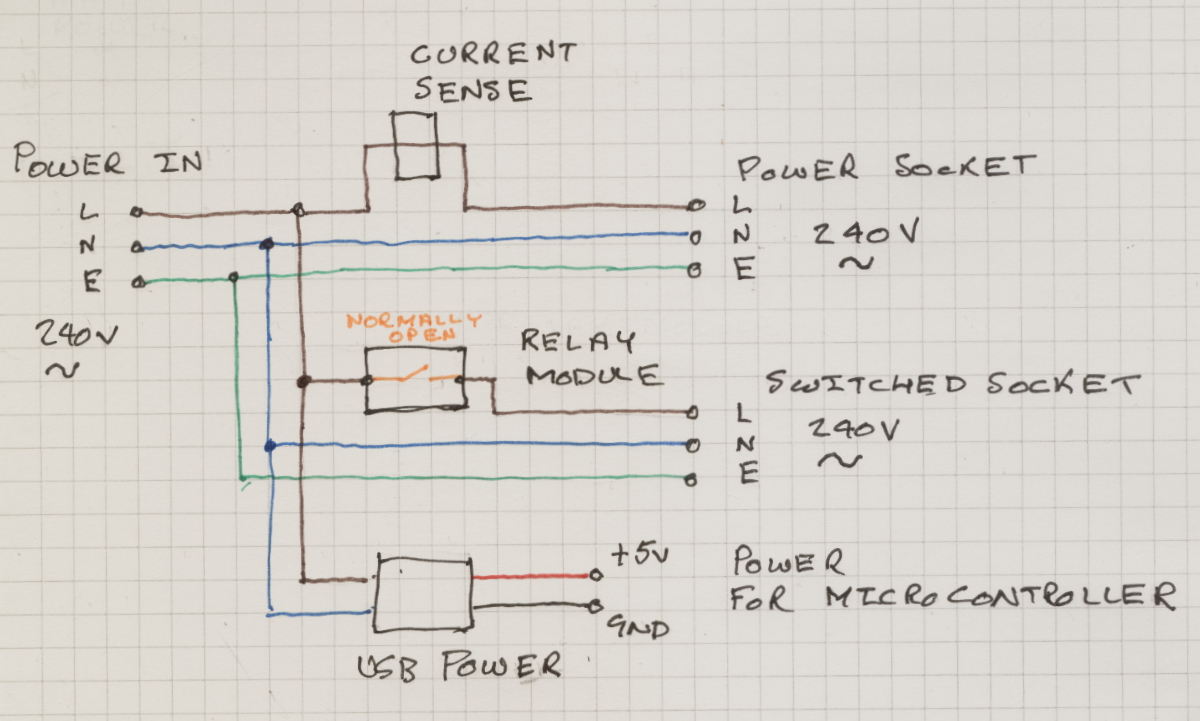 CURRENT
SENSE
POWER IN
L
N
E
240V
~
POWER SOCKET
L
N
E
240V
~
NORMALLY
OPEN
RELAY
MODULE
SWITCHED SOCKET
L
N
E
240V
~
+5V
GND
POWER
FOR MICROCONTROLLER
USB POWER